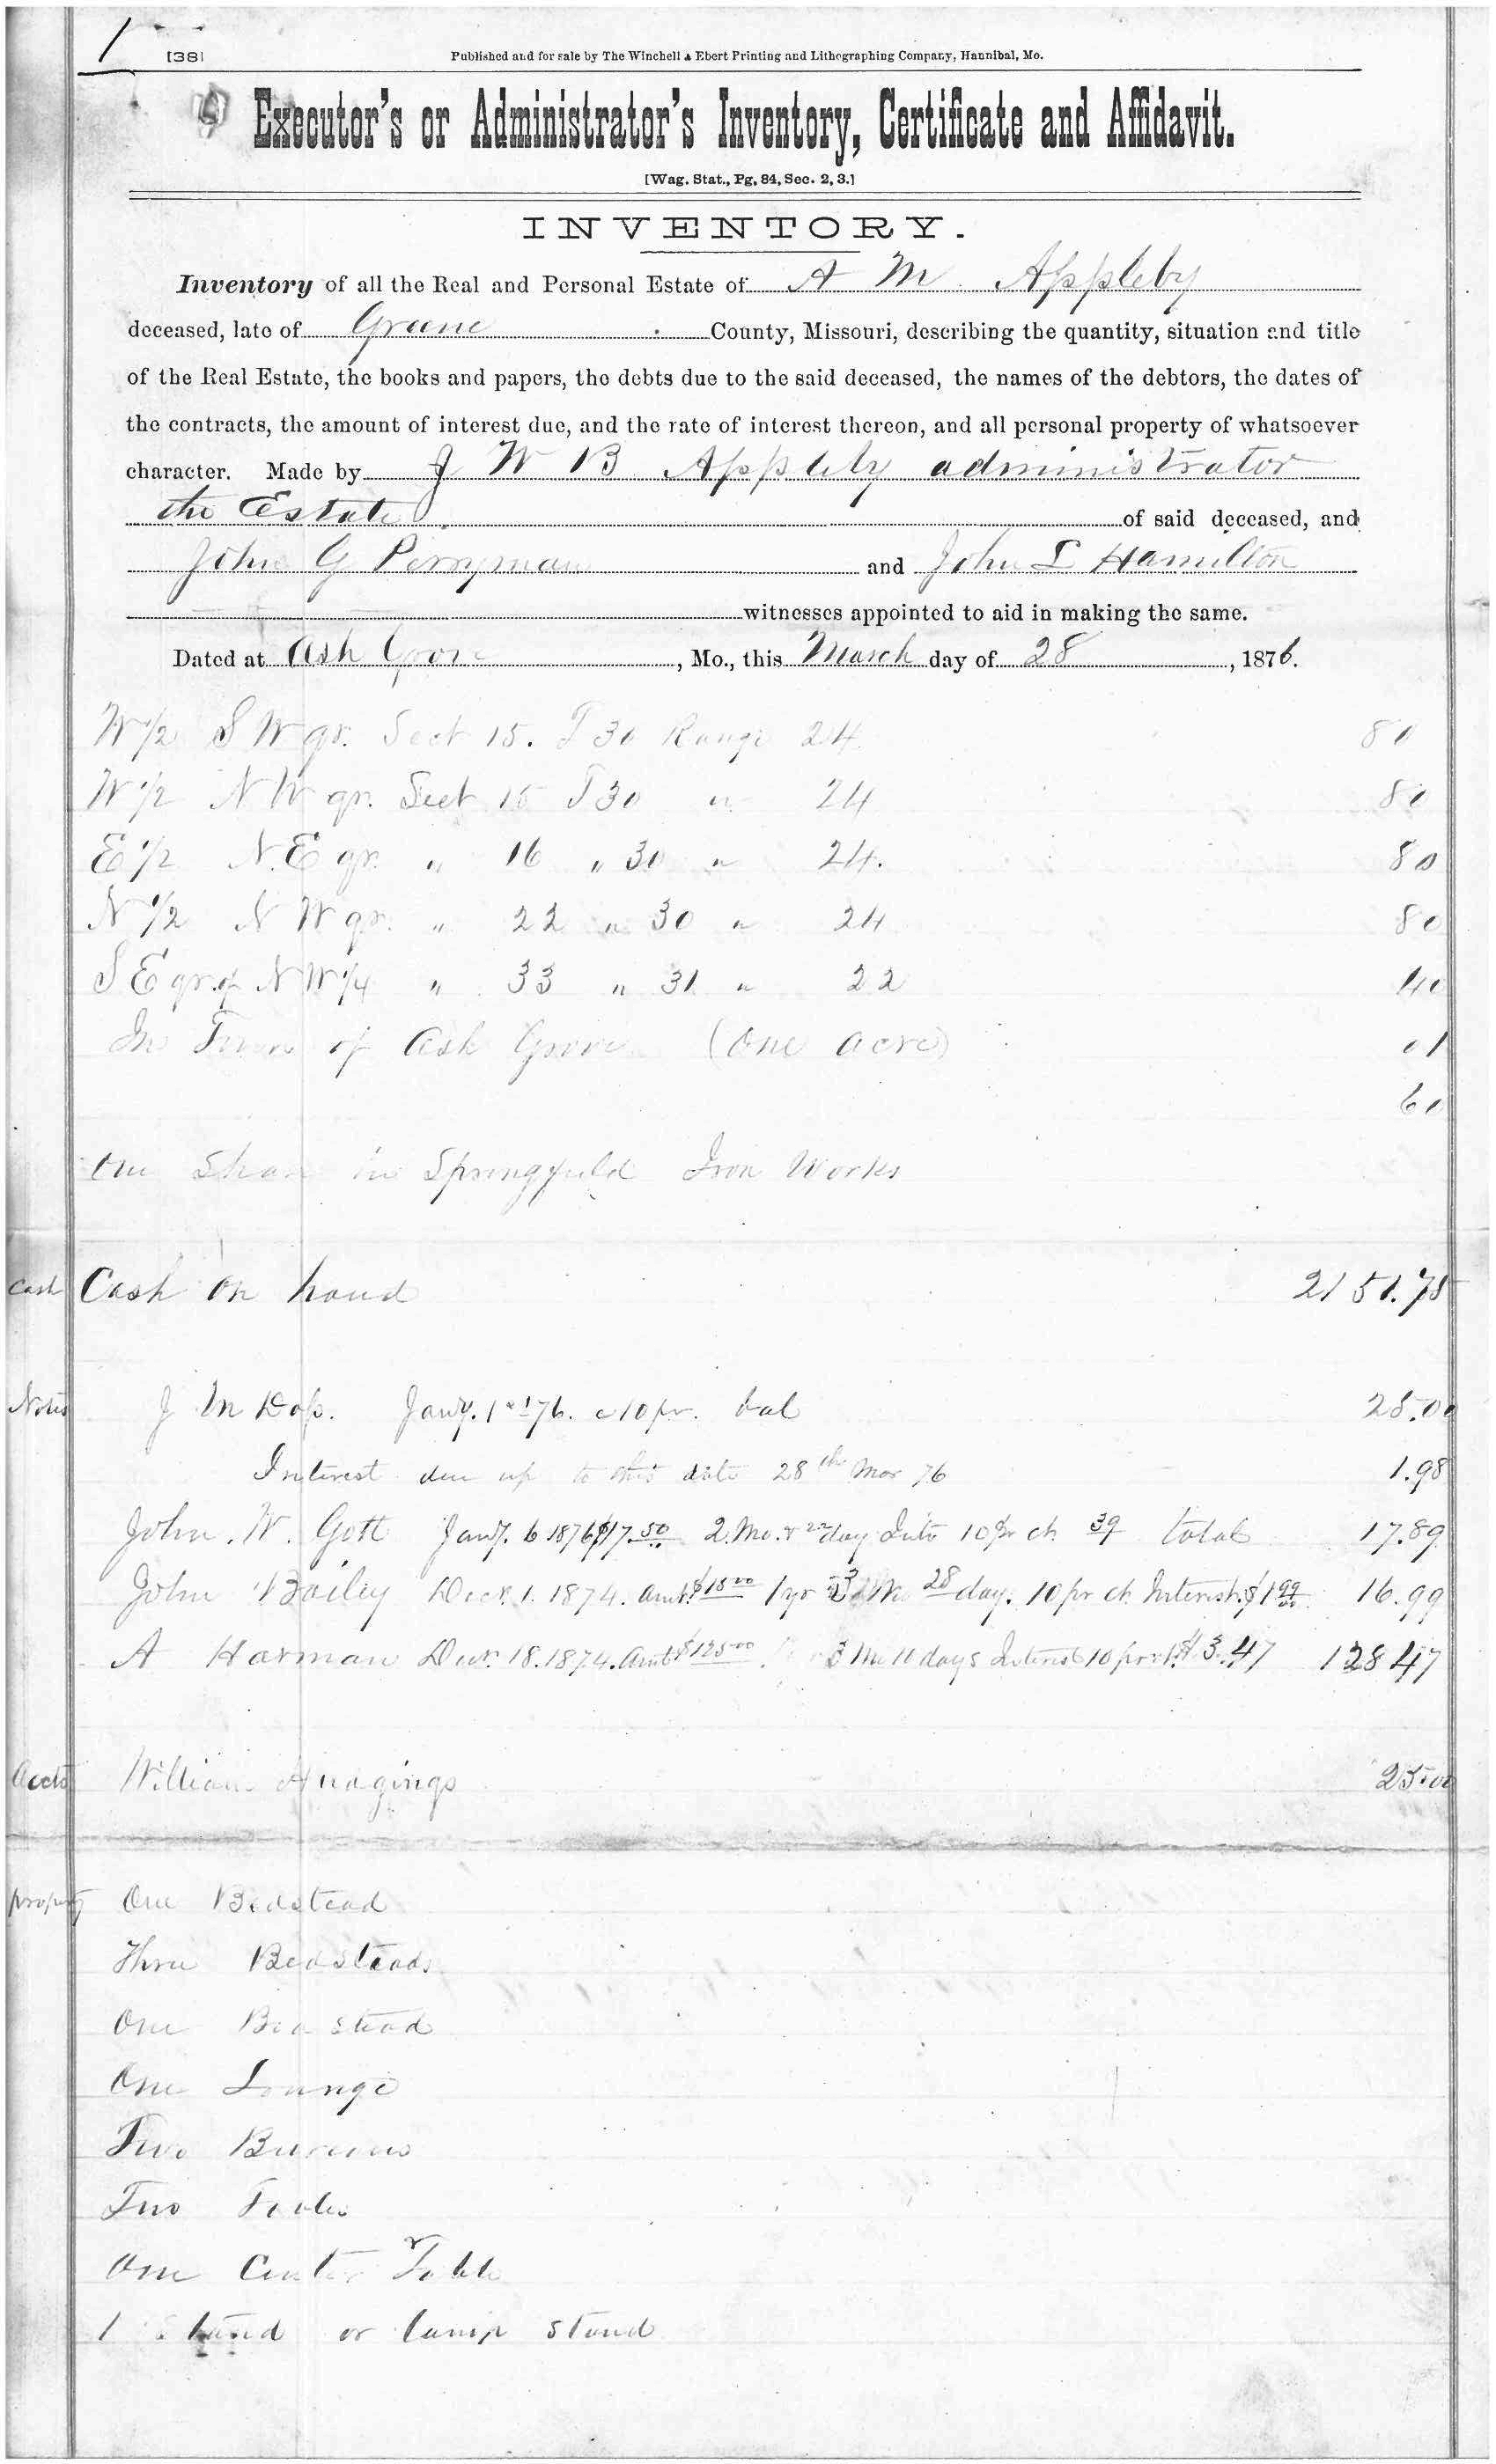 1
[38]
Published and for sale by The Winchell & Ebert Printing and Lithographing Company, Hannibal, Mo.
Executor's or Administrator's Inventory, Certificate and Affidavit.
[Wag. Stat., Pg, 84, Sec. 2, 3.]
INVENTORY.
Inventory of all the Real and Personal Estate of A M Appleby
deceased, late of Greene County, Missouri, describing the quantity, situation and title
of the Real Estate, the books and papers, the debts due to the said deceased, the names of the debtors, the dates of
the contracts, the amount of interest due, and the rate of interest thereon, and all personal property of whatsoever
character. Made by J W B Appleby administrator
the Estate of said deceased, and
John G Perryman and John L Hamilton
witnesses appointed to aid in making the same.
Dated at Ash Grove, Mo., this March day of 28, 1876.
W 1/2 S W qr. Sect 15. T 30 Range 24 80
W 1/2 N W qr. Sect 15 T 30 " 24 80
E 1/2 N.E qr. " 16 " 30 " 24. 80
N 1/2 N W qr. " 22 " 30 " 24 80
S E qr. of N W 1/4 " 33 " 31 " 22 40
In Town of Ash Grove (One acre) 01
60
One Share in Springfield Iron Works
Cash Cash On hand 2151.75
Notes J M Jany. 1st 76. 10 pr. bal 25.00
Interest due up to this date 28th Mar 76 1.98
John. W. Gott Jany. 6 1876 $17.50 2. Mo. & 22 day Inte 10 pr ct. 39 total 17.89
John Bailey Decr. 1. 1874. amt. $15 00 1 yr 3 Mo 28 day. 10 pr ct. Interest. $1 99 16.99
A Harman Decr. 18. 1874. Amt $125 00 3 Mo 11 days Interest 10 pr ct $3.47 128 47
Accts William 25.00
property One Bedstead
Three Bedsteads
One Bedstead
One Lounge
Two Bureaus
Two Tables
One Center Table
1 Stand or lamp stand